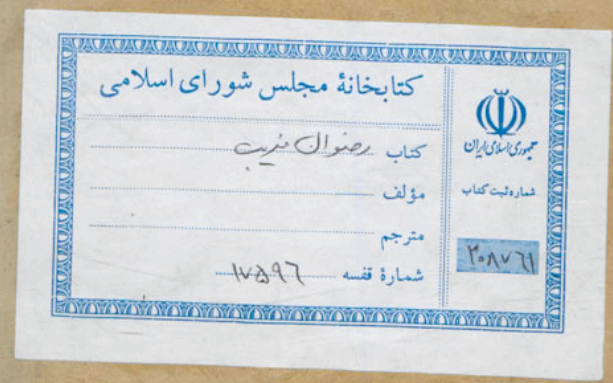 کتابخانهٔ مجلس شورای اسلامی
کتاب رضوان
مؤلف
مترجم
شمارهٔ قفسه ۱۷۵۹۶
جمهوری اسلامی ایران
شماره ثبت کتاب
۲۰۸۷۶۱